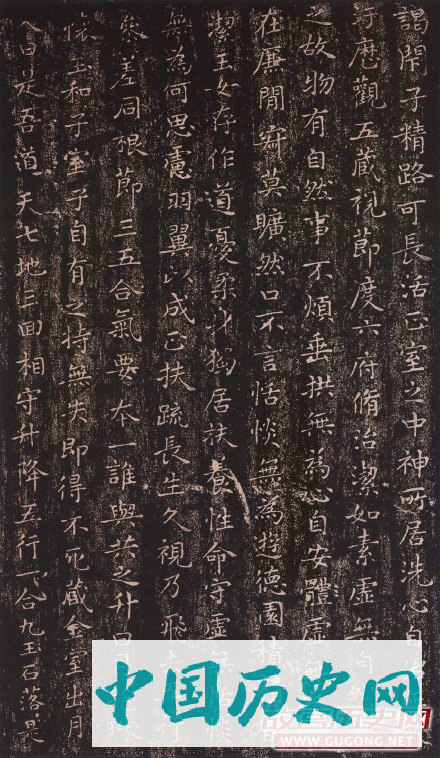 閉子精路可長活正室之中神所居洗心自
歷觀五藏視節度六府脩治潔如素虛無自
之故物有自然事不煩垂拱無為心自安體虛無
在廉間寂莫曠然口不言恬惔無為遊德園積
潔玉女存作道憂柔身獨居扶養性命守虛無
無為何思慮羽翼以成正扶疏長生久視乃飛去
參差同根節三五合氣要本一誰與共之升日
懷玉和子室子自有之持無失即得不死藏金室出月
入日是吾道天七地三回相守升降五行一合九玉石落是
中国历史网
WWW.GUGONG.NET